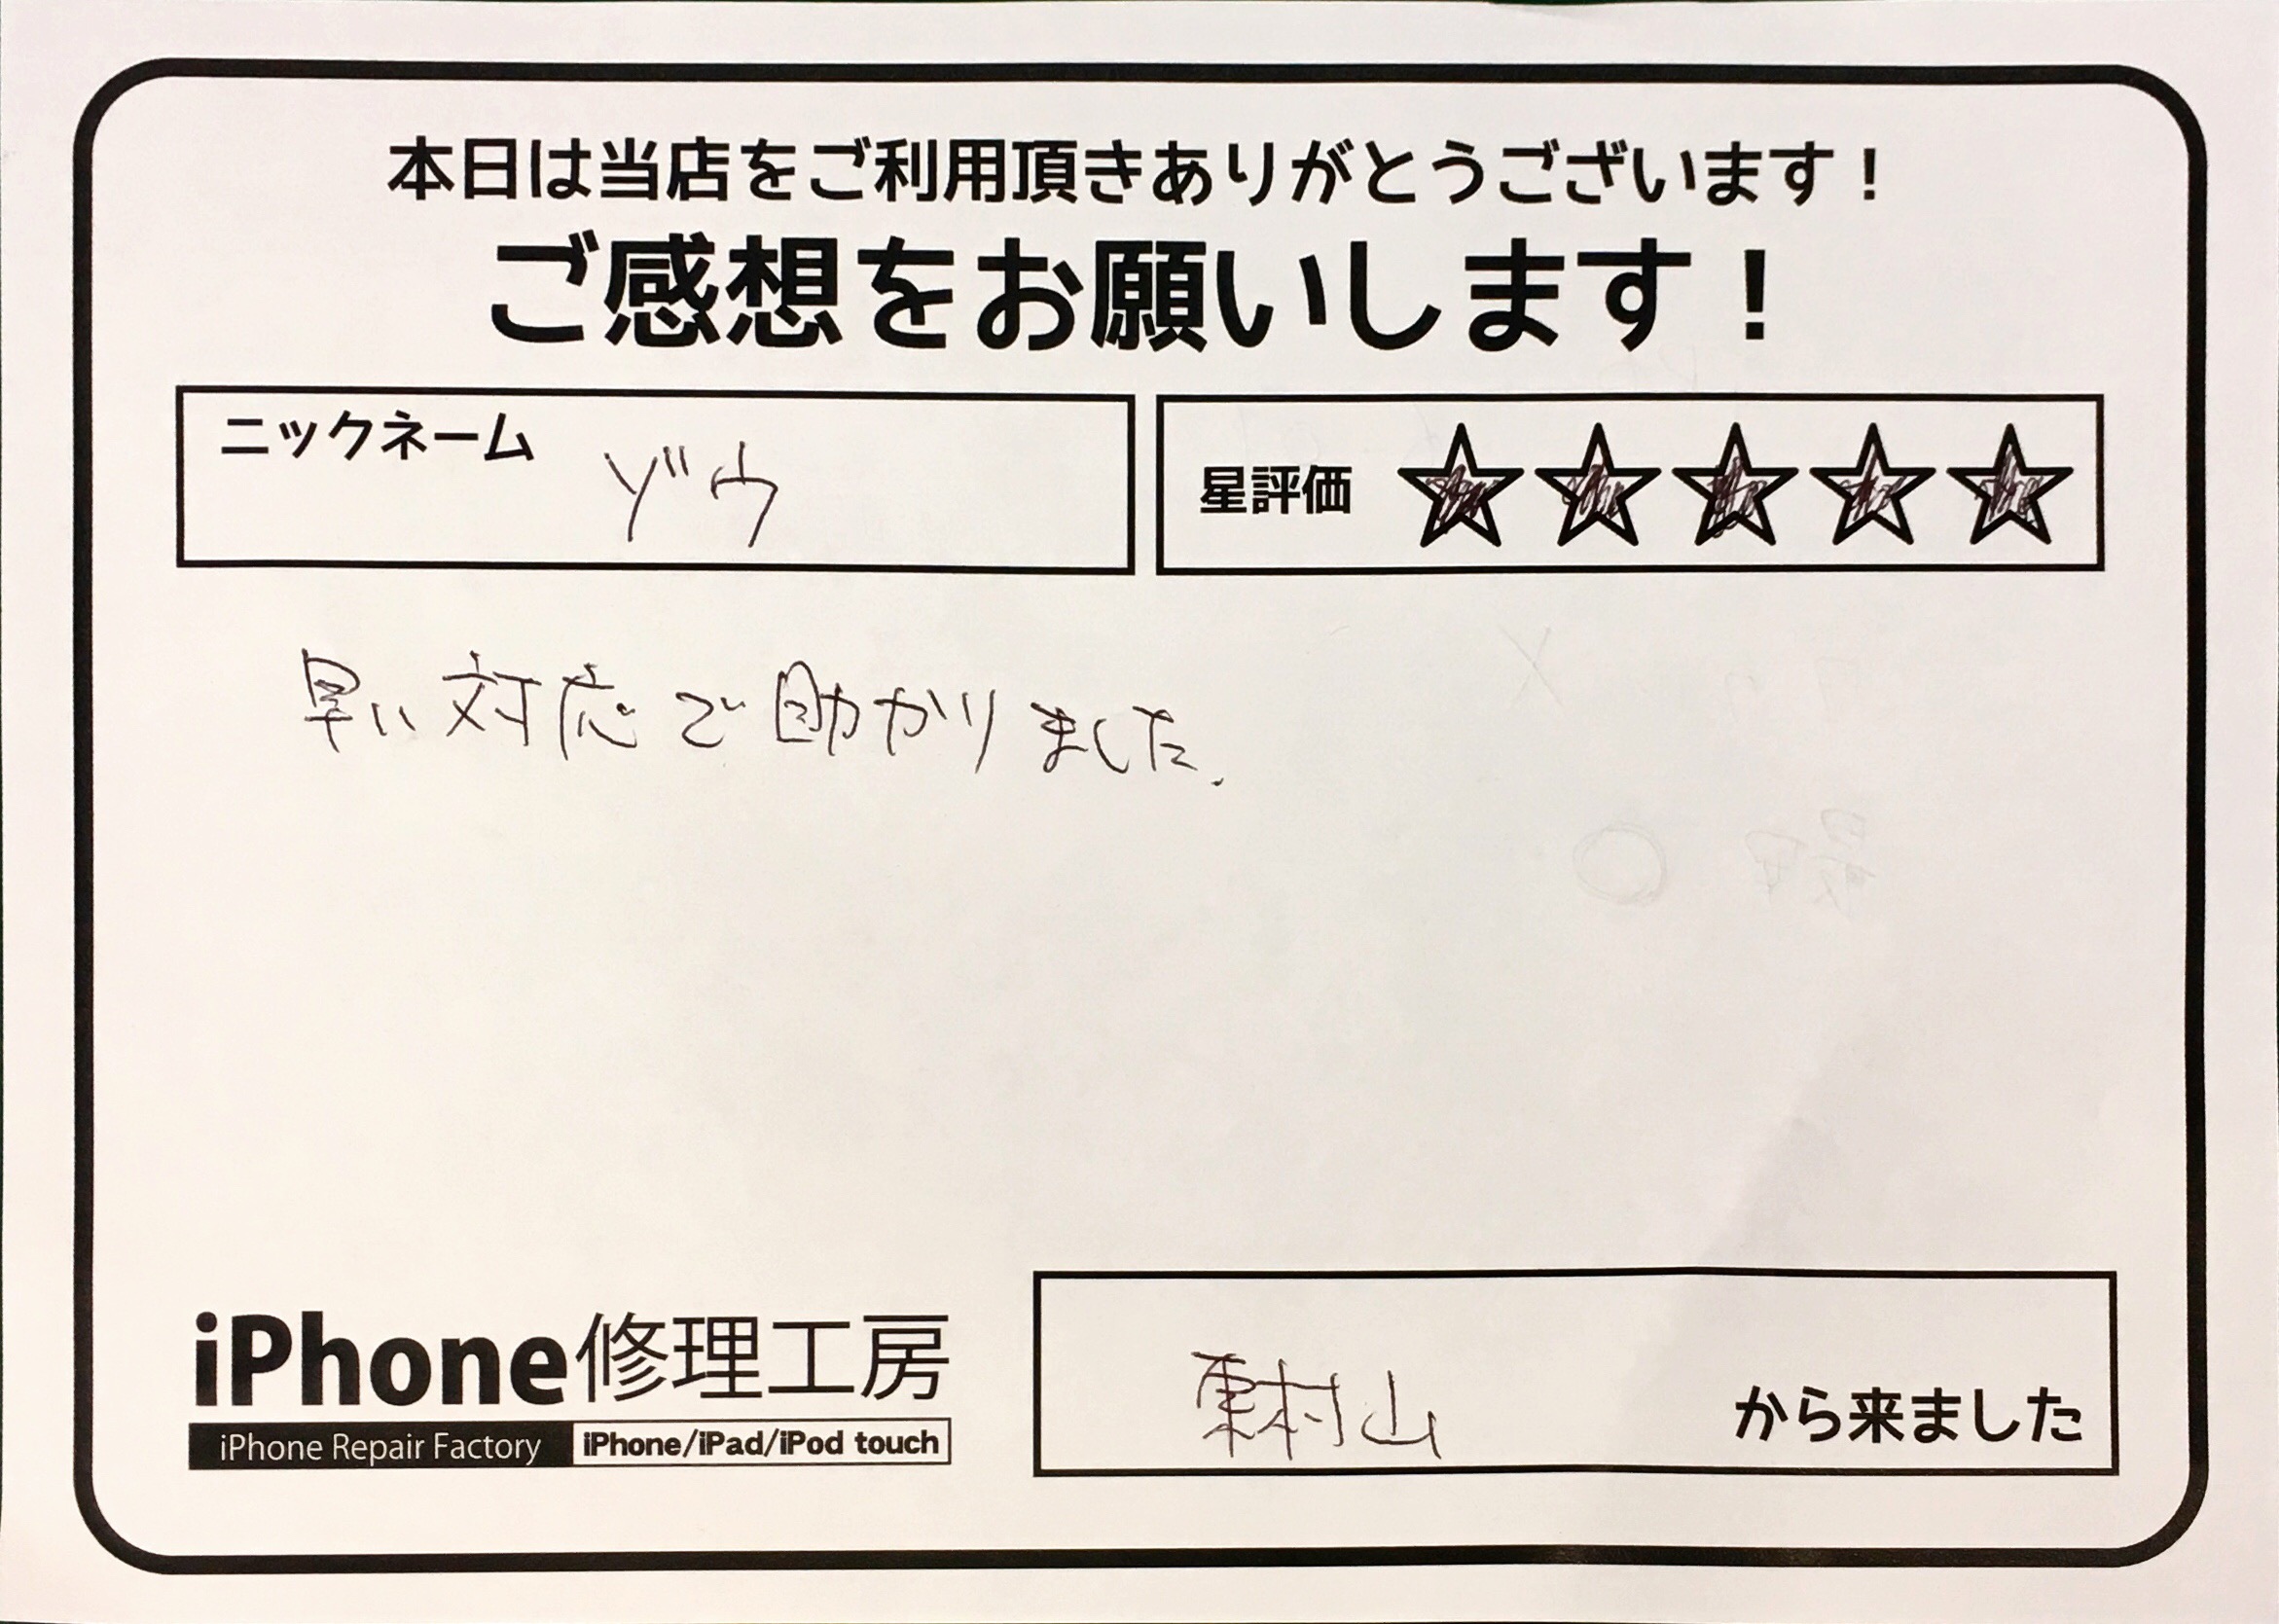 本日は当店をご利用頂きありがとうございます！
ご感想をお願いします！
ニックネーム ゾウ
星評価 ★★★★★
早い対応で助かりました.
iPhone修理工房
iPhone Repair Factory iPhone/iPad/iPod touch
東村山 から来ました